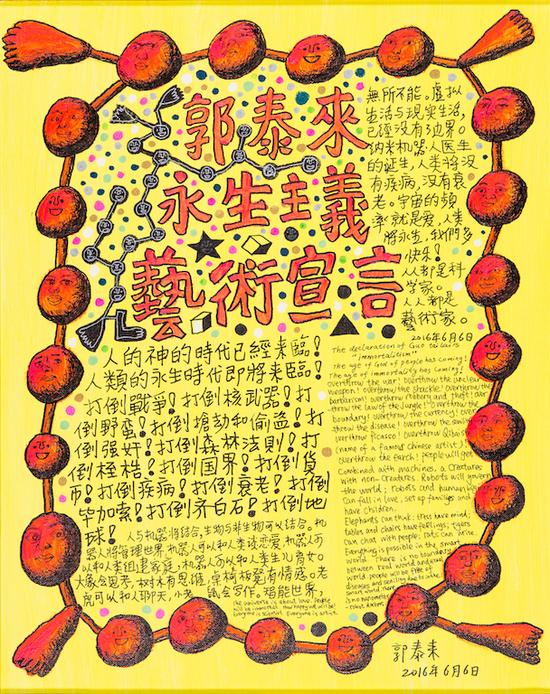 郭泰來
永生主義
藝術宣言
無所不能。虛拟
生活与現实生活,
已經没有边界。
纳米机器人医生
的诞生,人类將没
有疾病,没有衰
老。宇宙的頻
率就是爱,人类
將永生,我們多
快乐!
人人都是科
学家。
人人都是
藝術家。
2016年6月6日
人的神的時代已經来臨!
人類的永生時代即將来臨!
打倒戰爭!打倒核武器!打
倒野蛮!打倒搶劫和偷盗!打
倒强奸!打倒森林法則!打
倒桎梏!打倒国界!打倒貨
币!打倒疾病!打倒衰老!打倒
毕加索!打倒齐白石!打倒地
球!
人与机器將结合,生物与非生物可以结合。机
器人將管理世界,机器人可以和人类谈恋爱,机器人可
以和人类组建家庭,机器人可以和人类生儿育女。
大象会思考,树林有思維,桌椅板凳有情感。老
虎可以和人聊天,小老鼠会写作。智能世界,
The declaration of Guo Tailai's
"immortalitism"
The age of God's people has coming!
The age of immortality has coming!
overthrow the war! overthrow the nuclear
weapon! overthrow the shackle! overthrow the
barbarism! overthrow robbery and theft! over
throw the law of the jungle! overthrow the
boundary! overthrow the currency! over
throw the disease! overthrow the senility!
overthrow picasso! overthrow Qi baishi
(name of a famous chinese artist)!
overthrow the earth! people will get
combined with machines, a creatures
with non-creatures. Robots will govern
the world; robots and human beings
can fall in love, set up families and
have children.
Elephants can think; trees have mind;
tables and chairs have feelings; tigers
can chat with people; rats can write.
Everything is possible in the smart
world. There is no boundary
between real world and virtual
world. people will be free of
diseases and
郭泰来
2016年6月6日